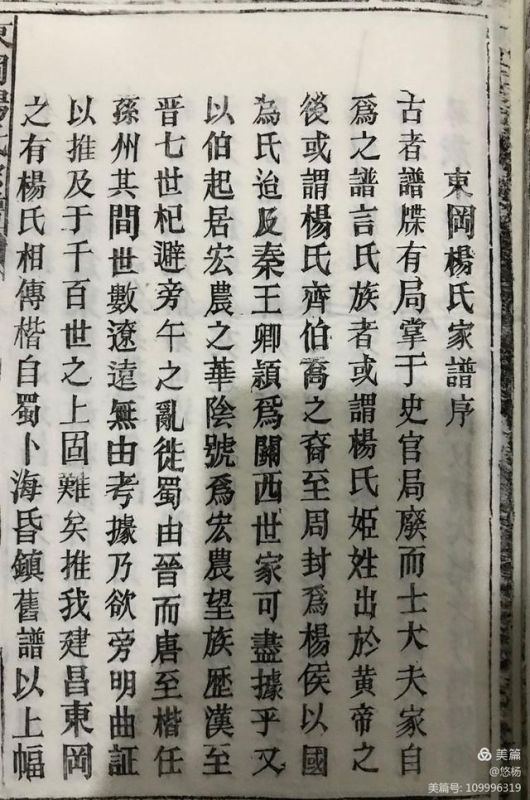 東岡楊氏家譜序
古者譜牒有局掌于史官局廢而士大夫家自
爲之譜言氏族者或謂楊氏姬姓出於黄帝之
後或謂楊氏齊伯喬之裔至周封爲楊侯以國
為氏迨及秦王卿頴爲關西世家可盡據乎又
以伯起居宏農之華陰號爲宏農望族歷漢至
晋七世杞避旁午之亂徙蜀由晉而唐至楷任
孫州其間世數遼遠無由考據乃欲旁明曲証
以推及于千百世之上固難矣推我建昌東岡
之有楊氏相傳楷自蜀卜海昏鎮舊譜以上幅
美篇
@悠杨
美篇号: 109996319